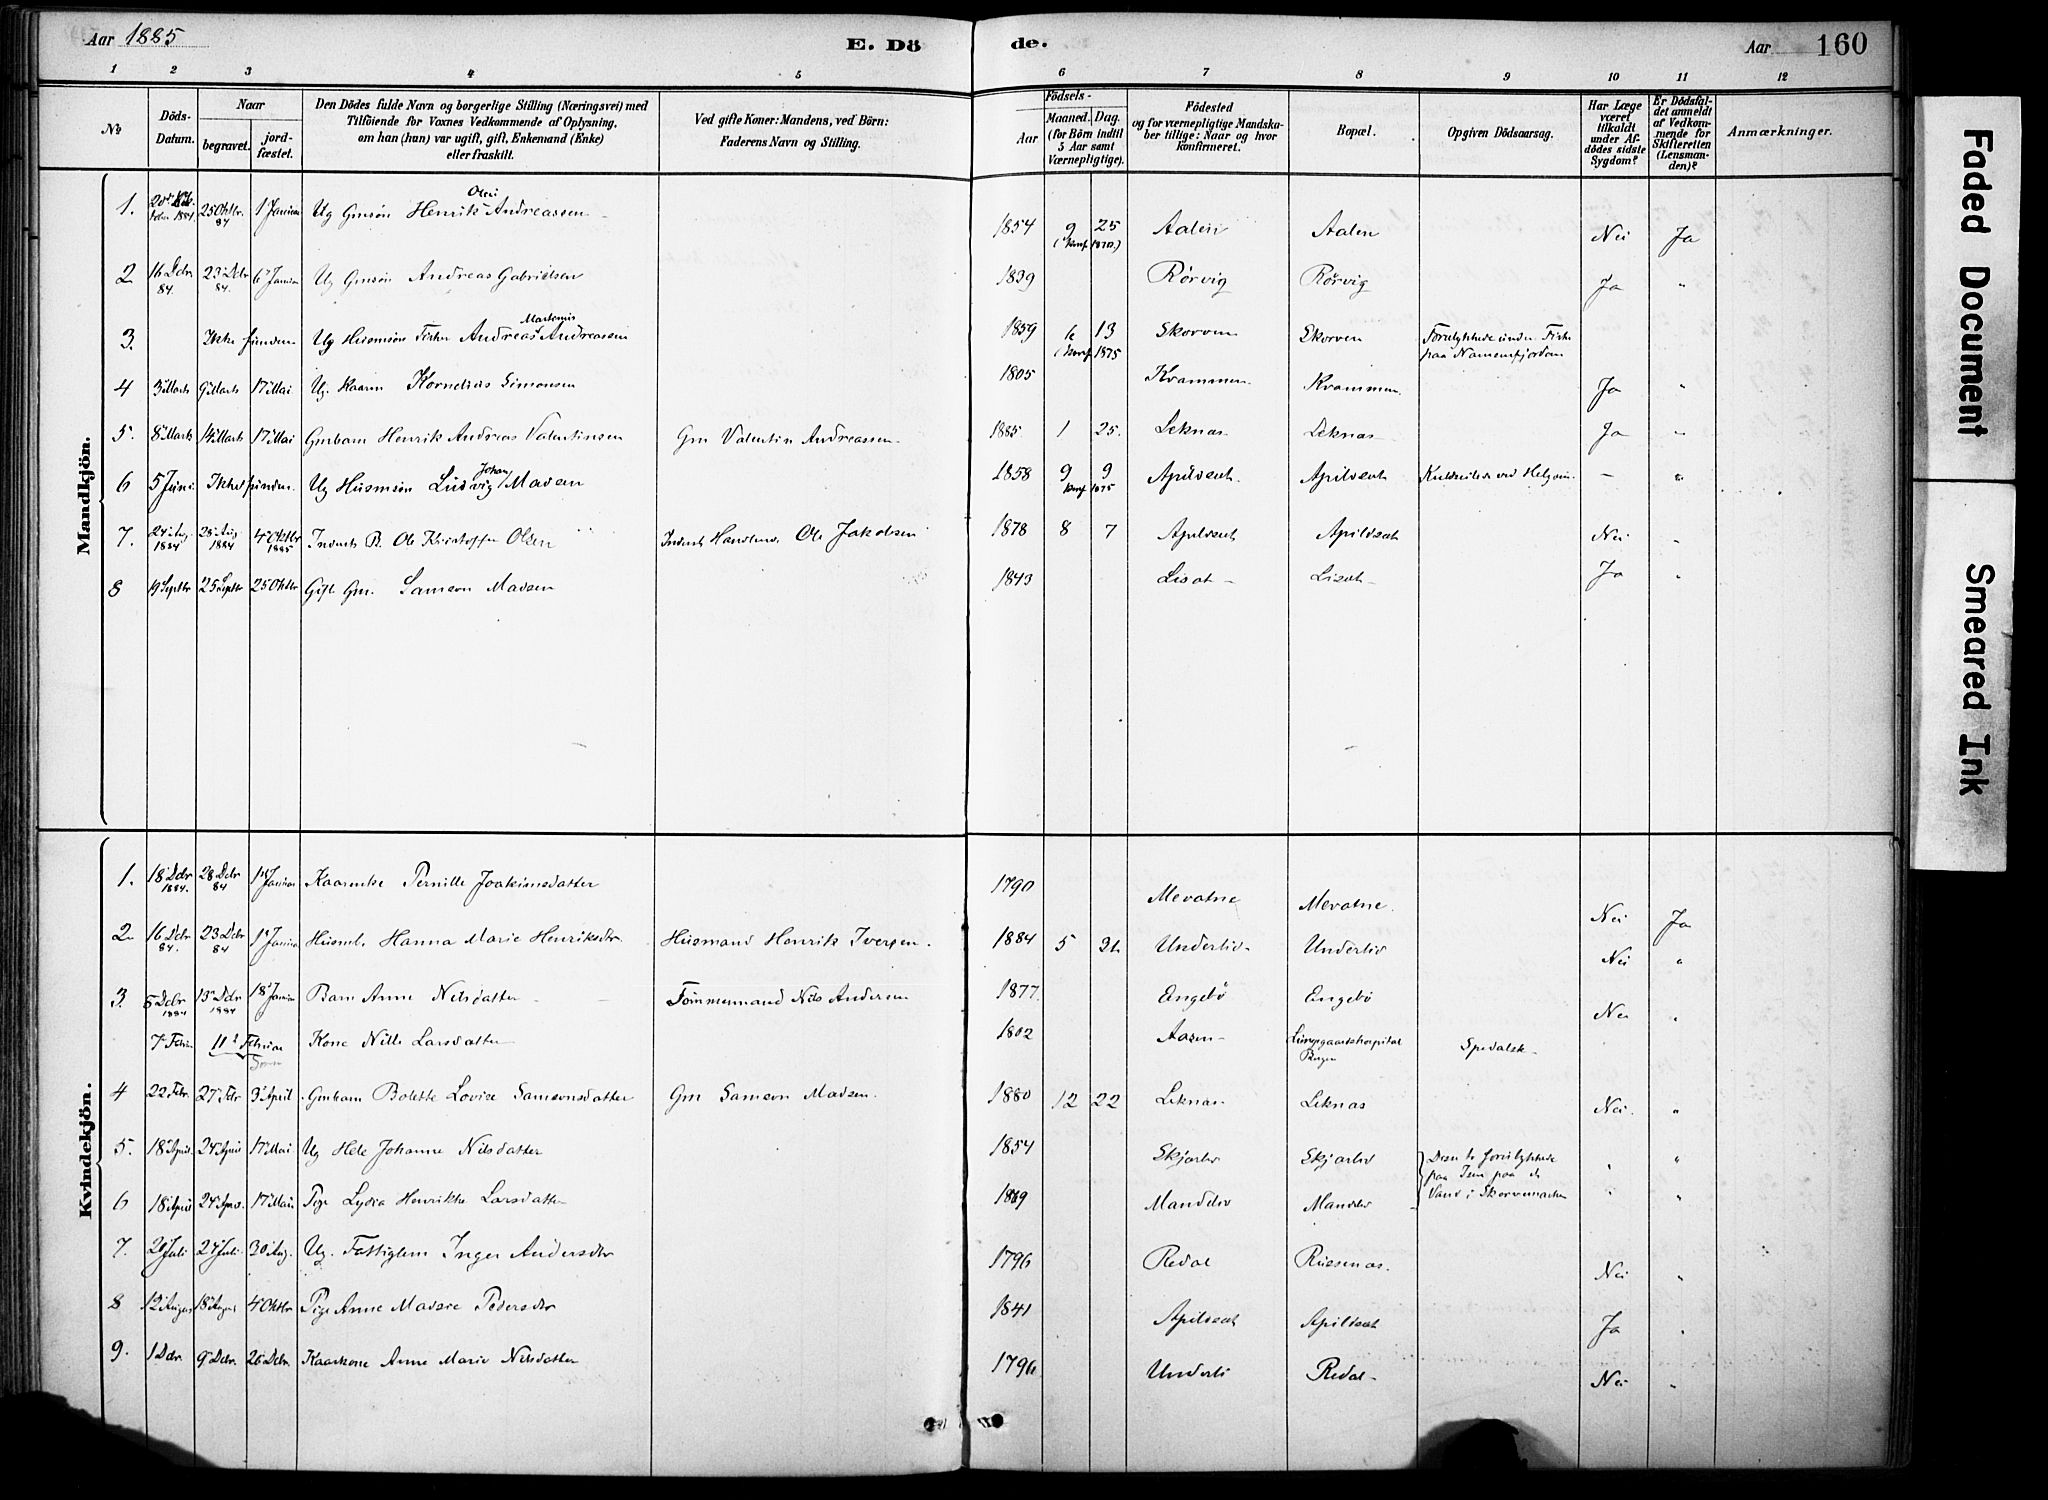 Aar 1885 E. Dö de. Aar 160
1 2 3 4 5 6 7 8 9 10 11 12
No
Döds-Datum.
Naar
begravet.
jordfæstet.
Den Dödes fulde Navn og borgerlige Stilling (Næringsvei) med
Tilföiende for Voxnes Vedkommende af Oplysning,
om han (hun) var ugift, gift, Enkemand (Enke)
eller fraskilt.
Ved gifte Koner: Mandens, ved Börn:
Faderens Navn og Stilling.
Födsels-
Aar
Maaned. Dag.
(for Börn indtil
5 Aar samt
Værnepligtige).
Födested
og for værnepligtige Mandskaber tillige: Naar og hvor
konfirmeret.
Bopæl.
Opgiven Dödsaarsag.
Har Læge
været
tilkaldt
under Afdödes sidste
Sygdom?
Er Dödsfaldet anmeldt
af Vedkommende for
Skifteretten
(Lensmanden)?
Anmærkninger.
Mandkjön.
1. 25 Oktbr. 84 1 Januar Ug Gmsön Henrik Olai Andreassen 1854 9 25 (konf. 1870.) Aalen Aalen Nei Ja
2 16 Dcbr 84. 23 Dcbr 84. 6 Januar Ug Gmsön Andreas Gabrielsen 1839 Rörvig Rörvig Ja "
3. Ikke funden Ug Husmsön Fisker Andreas Martinus Andreassen 1859 6 13 (konf 1875 Skorven Skorven Forulykkede under Fiske
4 3 Marts 9 Marts 17 Mai Ug. Kaarm Kornelius Simonsen 1805 Kvammen Kvammen. Ja "
5. 8 Marts 14 Marts 17 Mai Gmbarn Henrik Andreas Valentinsen Gm Valentin Andreassen 1885 1 25. Leknas Leknas Ja "
6 5 Juni Ikke funden. Ug Husmsön Ludvig Johan Madsen 1858 9 9 konf 1875 Apilseat. Apilseat — "
7. 24 Aug. 1884 28 Aug 1884 4 Oktbr 1885 Inderst B. Ole Kristoffer Olsen Inderst Handlende Ole Jakobsen 1878 8 7 Apilseat Apildseat Nei "
8 19 Septbr 25 Septbr 25 Oktbr Gift Gm. Samson Madsen 1843 Liset Liset Ja "
Kvindekjön.
1. 18 Dcbr 1884. 28 Dcbr 84 1 Januar Kaarenke Pernille Joakimsdatter 1790 Mevatne Mevatne. Nei Ja
2 16 Dcbr 84. 23 Dcbr 84 1 Januar Husmb. Hanna Marie Henriksdr. Husmand Henrik Iversen. 1884 5 Underliv Underliv Nei "
3. 5 Dcbr 1884 13 Dcbr 1884 18 Januar Barn Anne Nilsdatter Tömmermand Nils Andersen 1877. Engebö Engebö Nei "
7 Februar 11 Februar Kone Nille Larsdatter 1802 Aasen Lungegaardshospital Bergen Spedalsk
4 22 Febr. 27 Febr 3 April Gmbarn Bolette Lovise Samsonsdatter Gm Samson Madsen. 1880 12 22 Leknas Leknas Nei. "
5. 18 April 24 April 17 Mai Ug Hele Johanne Nilsdatter 1854 Skjarliv Skjarliv Disse to forulykkede " "
paa Isen paa de
6 18 April 24 April 17 Mai Pige Lydia Henrikke Larsdatter 1869 Mandeliv Mandeliv Vand i Skorvemarken " "
7. 20 Juli 24 Juli 30 Aug. Ug. Fattiglem Inger Andersdtr 1796 Redal Nei "
8 12 August 18 August 4 Oktbr Pige Anne Madsie Pedersdtr 1841 Apilseat Apildseat Ja "
9. 1 Dcbr. 9 Dcbr. 26 Dcbr. Kaarkone Anne Marie Nilsdatter 1796 Underli Redal Nei "
Faded Document
Smeared Ink